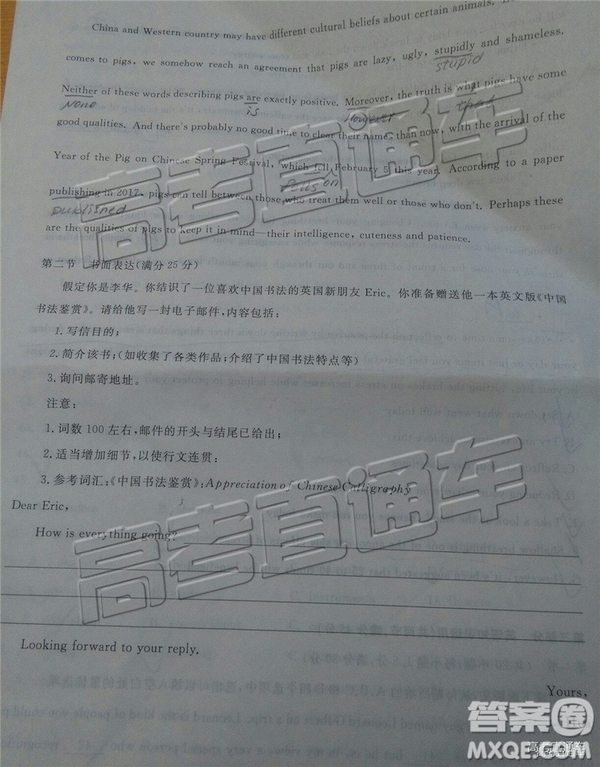 China and Western country may have different cultural beliefs about certain animals.
comes to pigs, we somehow reach an agreement that pigs are lazy, ugly, stupidly and shameless.
stupid
Neither of these words describing pigs are exactly positive. Moreover, the truth is what pigs have some
None is However that
good qualities. And there's probably no good time to clear their names than now, with the arrival of the
Year of the Pig on Chinese Spring Festival, which fell February 5 this year. According to a paper
on
publishing in 2017, pigs can tell between those who treat them well or those who don't. Perhaps these
published
are the qualities of pigs to keep it in mind—their intelligence, cuteness and patience.
第二节 书面表达(满分25分)
假定你是李华。你结识了一位喜欢中国书法的英国新朋友Eric。你准备赠送他一本英文版《中国
书法鉴赏》。请给他写一封电子邮件,内容包括:
1.写信目的;
2.简介该书;(如收集了各类作品;介绍了中国书法特点等)
3.询问邮寄地址。
注意:
1.词数100左右,邮件的开头与结尾已给出;
2.适当增加细节,以使行文连贯;
3.参考词汇:《中国书法鉴赏》:Appreciation of Chinese Calligraphy
Dear Eric,
How is everything going?
Looking forward to your reply.
Yours,
高考直通车
高考直通车
答案圈
MXQE.COM